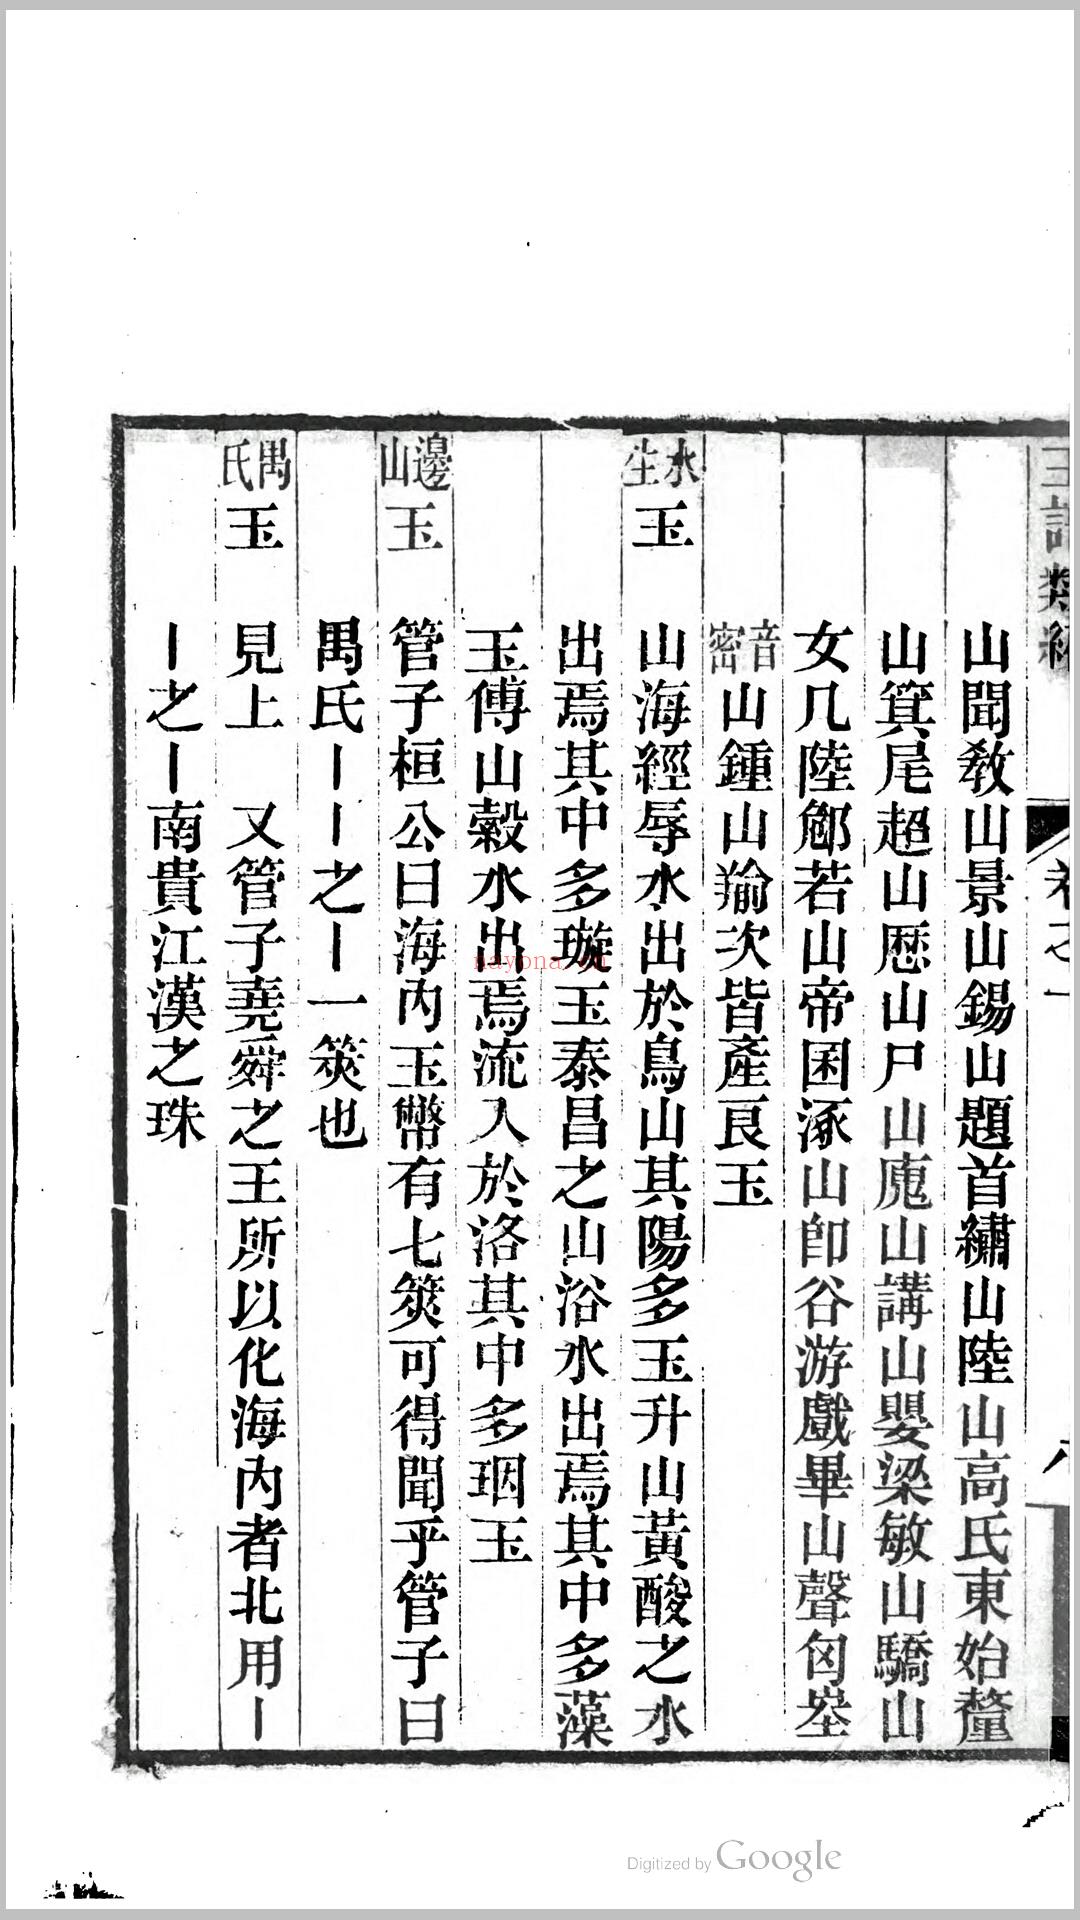 玉譜類編 卷之一
山聞教山景山錫山題首繡山陸山高氏東始釐
山箕尾超山厯山尸山廆山講山嬰梁敏山驕山
女几陸䣀若山帝囷涿山卽谷游戲畢山聲匈
音密山鍾山羭次皆產良玉
水生玉 山海經辱水出於鳥山其陽多玉升山黃酸之水
出焉其中多璇玉泰昌之山浴水出焉其中多藻
玉傅山穀水出焉流入於洛其中多珚玉
邊山玉 管子桓公曰海內玉幣有七筴可得聞乎管子曰
禺氏丨丨之丨一筴也
禺氏玉 見上 又管子堯舜之王所以化海內者北用丨
丨之丨南貴江漢之珠
nayona.cn
Digitized by Google